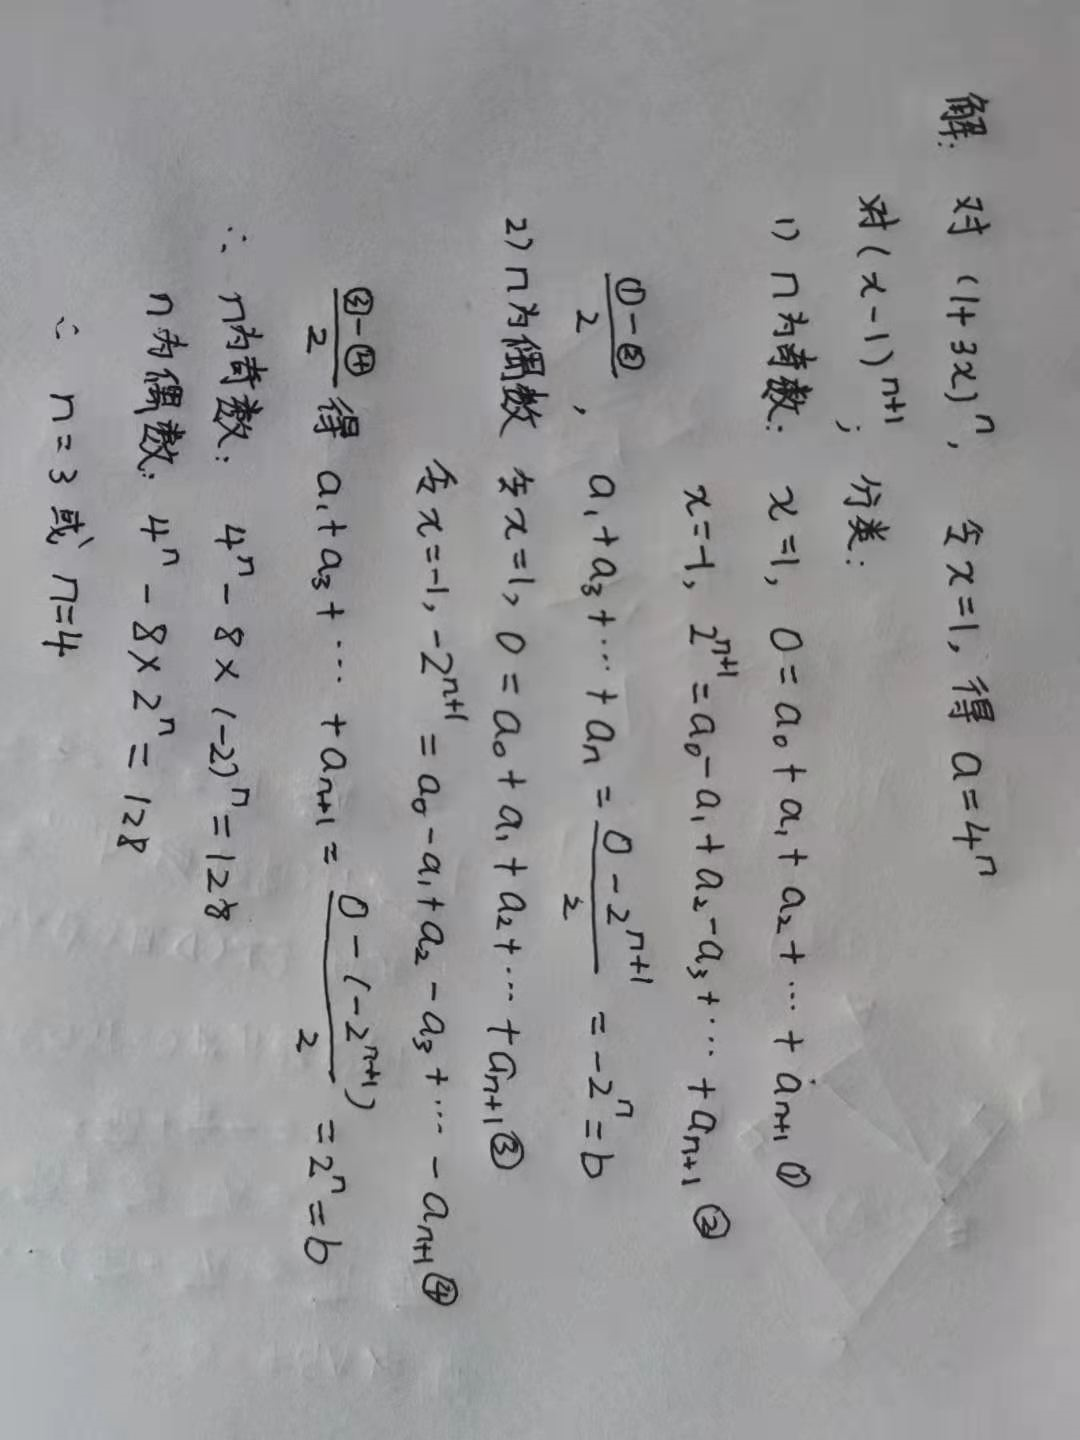 解: 对 (1+3x)ⁿ, 令x=1, 得 a=4ⁿ
对(x-1)ⁿ⁺¹; 分类:
1) n为奇数: x=1, 0=a₀+a₁+a₂+…+aₙ₊₁ ①
x=-1, 2ⁿ⁺¹=a₀-a₁+a₂-a₃+…+aₙ₊₁ ②
(①-②)/2, a₁+a₃+…+aₙ = (0-2ⁿ⁺¹)/2 = -2ⁿ=b
2) n为偶数 令x=1, 0=a₀+a₁+a₂+…+aₙ₊₁ ③
令x=-1, -2ⁿ⁺¹=a₀-a₁+a₂-a₃+…-aₙ₊₁ ④
(③-④)/2 得 a₁+a₃+…+aₙ₊₁ = (0-(-2ⁿ⁺¹))/2 = 2ⁿ=b
∴ n为奇数: 4ⁿ-8×(-2)ⁿ=128
n为偶数: 4ⁿ-8×2ⁿ=128
∴ n=3或n=4